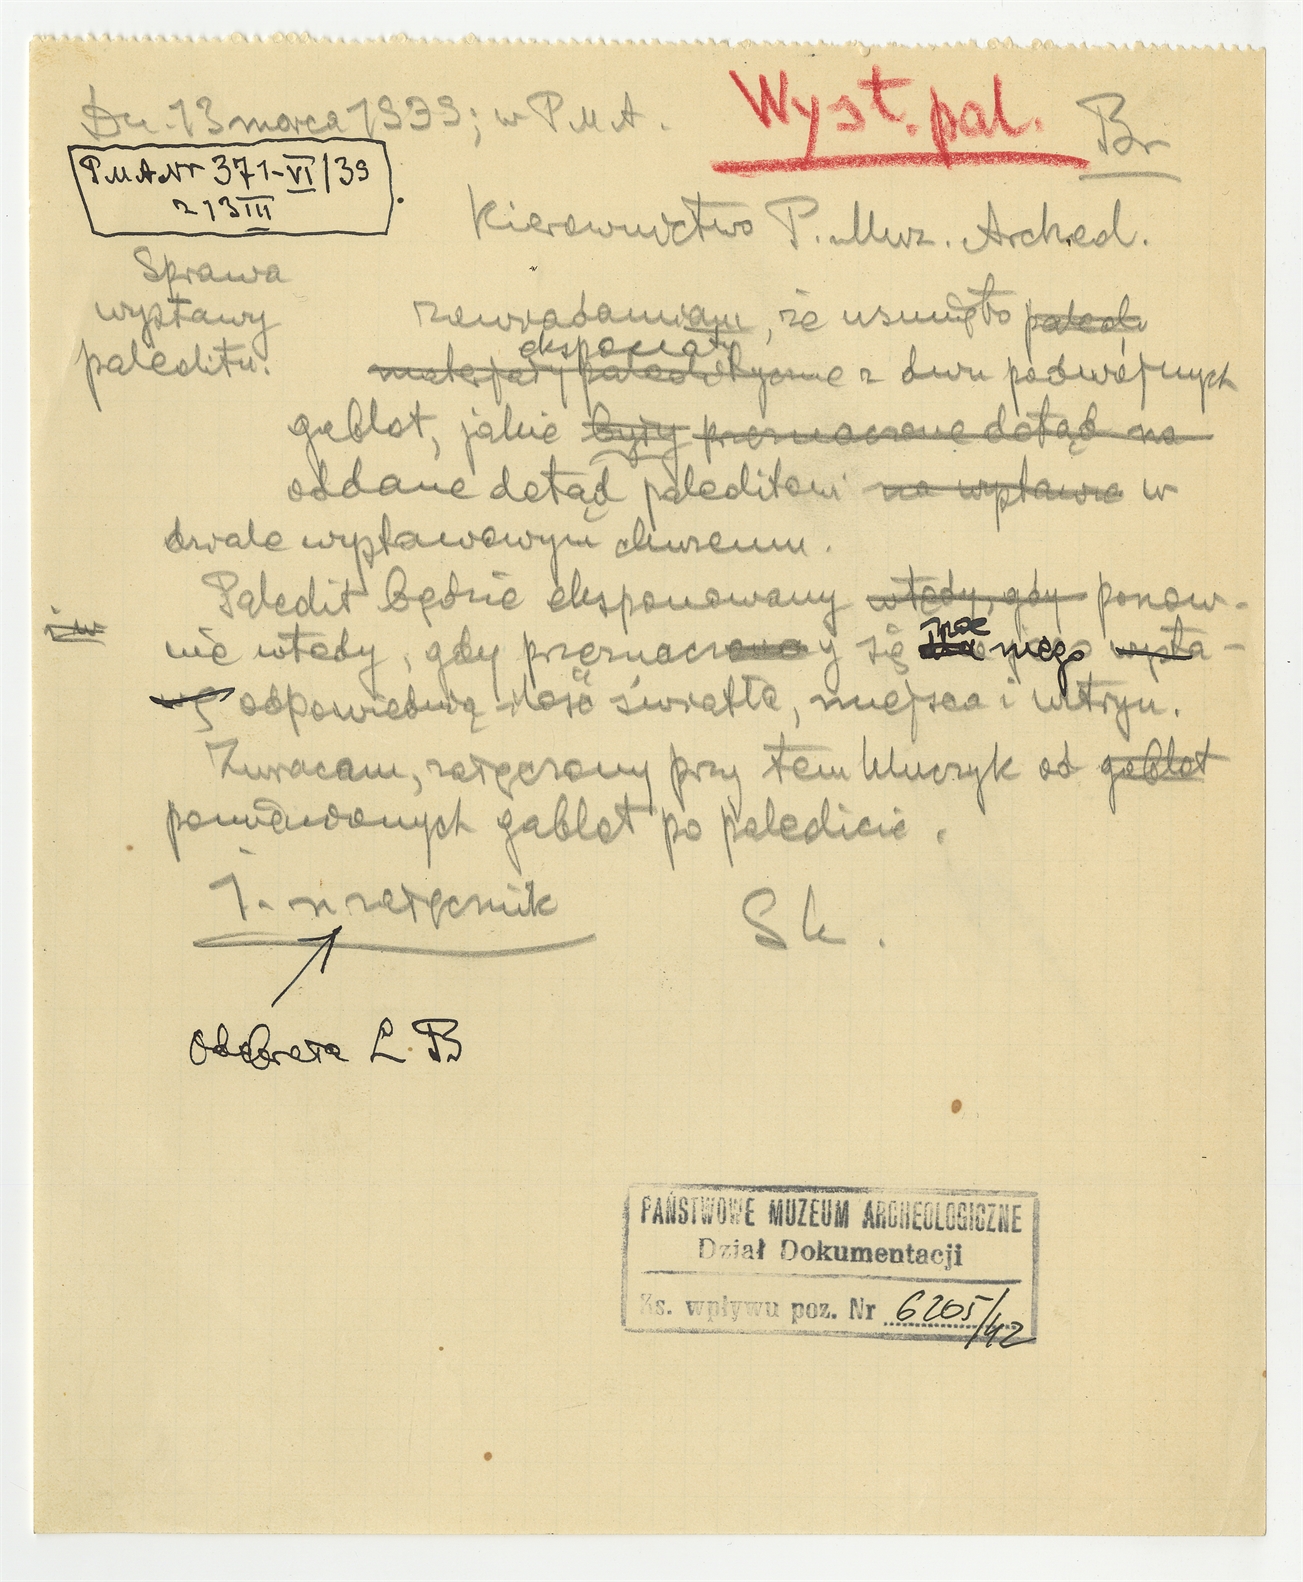 Dn. 13 marca 1939; w P.M.A.
Wyst. pal.
Br
P.M.A. Nr 371-VI/39
z 13 III
Kierownictwo P. Muz. Archeol.
Sprawa
wystawy
paleolitu.
zawiadamiam, że usunięto paleol
eksponaty
materjały paleolityczne z dwu podwójnych
gablot, jakie były przeznaczone dotąd na
oddane dotąd paleolitowi na wystawie w
dziale wystawowym muzeum.
Paleolit będzie eksponowany wtedy, gdy ponow-
nie wtedy, gdy przeznaczony się na niego wysta-
wę odpowiednią ilość światła, miejsca i witryn.
Zwracam, załączony przy tem kluczyk od gablot
pomienionych gablot po paleolicie.
1. załącznik
Sk.
Odebrała L. B
PAŃSTWOWE MUZEUM ARCHEOLOGICZNE
Dział Dokumentacji
Ks. wpływu poz. Nr 6205/42